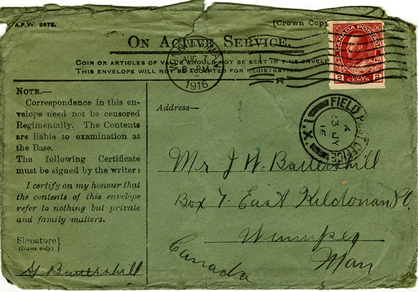 A.F.W. 3078.
[Crown Cop
On Active Service.
Coin or articles of value should not be sent in this envelo
This envelope will not be accepted for registration.
1916
CANADA POSTAGE
2 CENTS 2
FIELD POST OFFICE
Note.—
Correspondence in this en-
velope need not be censored
Regimentally. The Contents
are liable to examination at
the Base.
The following Certificate
must be signed by the writer:
I certify on my honour that
the contents of this envelope
refer to nothing but private
and family matters.
Signature }
(Name only)
Address—
Mr J W. Battershill
Box 7. East Kildonan P.O.
Winnipeg
Man
Canada
Battershill